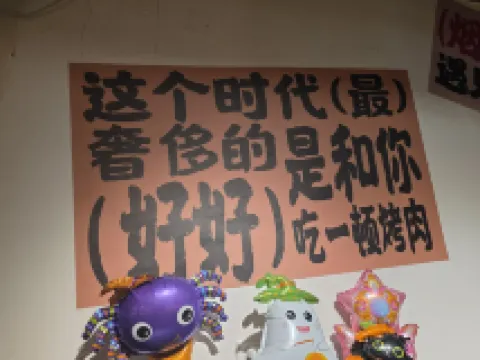 这个时代(最)
奢侈的是和你
(好好)吃一顿烤肉
遇见